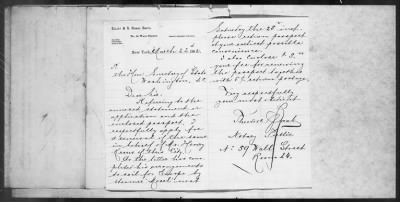 New York, March 24th 188
To the Hon. Secretary of State
Washington, D.C.
Dear Sir:
Referring to the
annexed statement or
application and the
enclosed passport, I
respectfully apply for
a renewal of the same
in behalf of Mr. Henry
of this City.
As the latter has com-
pleted his arrangements
to sail for Europe by
steamer next
Saturday the 28th inst.
please return passport
at your earliest possible
convenience.
I also enclose $
your fee for renewing
the passport together
with return postage.
Very respectfully
your most obedient
Notary Public
No. 59 Wall Street
Room 24.